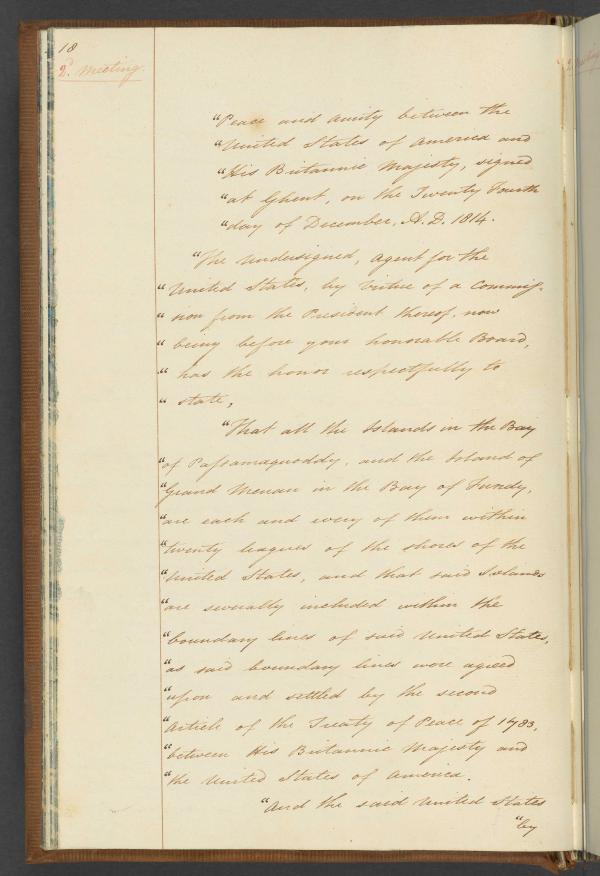 18
2d. Meeting.
"Peace and amity between the
"United States of America and
"His Britannic Majesty, signed
"at Ghent, on the Twenty Fourth
"day of December, A.D. 1814.
"The undersigned, Agent for the
"United States, by virtue of a Commis-
"sion from the President thereof, now
"being before your honorable Board,
"has the honor respectfully to
"state,
"That all the Islands in the Bay
"of Passamaquoddy, and the Island of
"Grand Menan in the Bay of Fundy,
"are each and every of them within
"twenty leagues of the shores of the
"United States, and that said Islands
"are severally included within the
"boundary lines of said United States,
"as said boundary lines were agreed
"upon and settled by the second
"Article of the Treaty of Peace of 1783,
"between His Britannic Majesty and
"the United States of America.
"And the said United States
"by